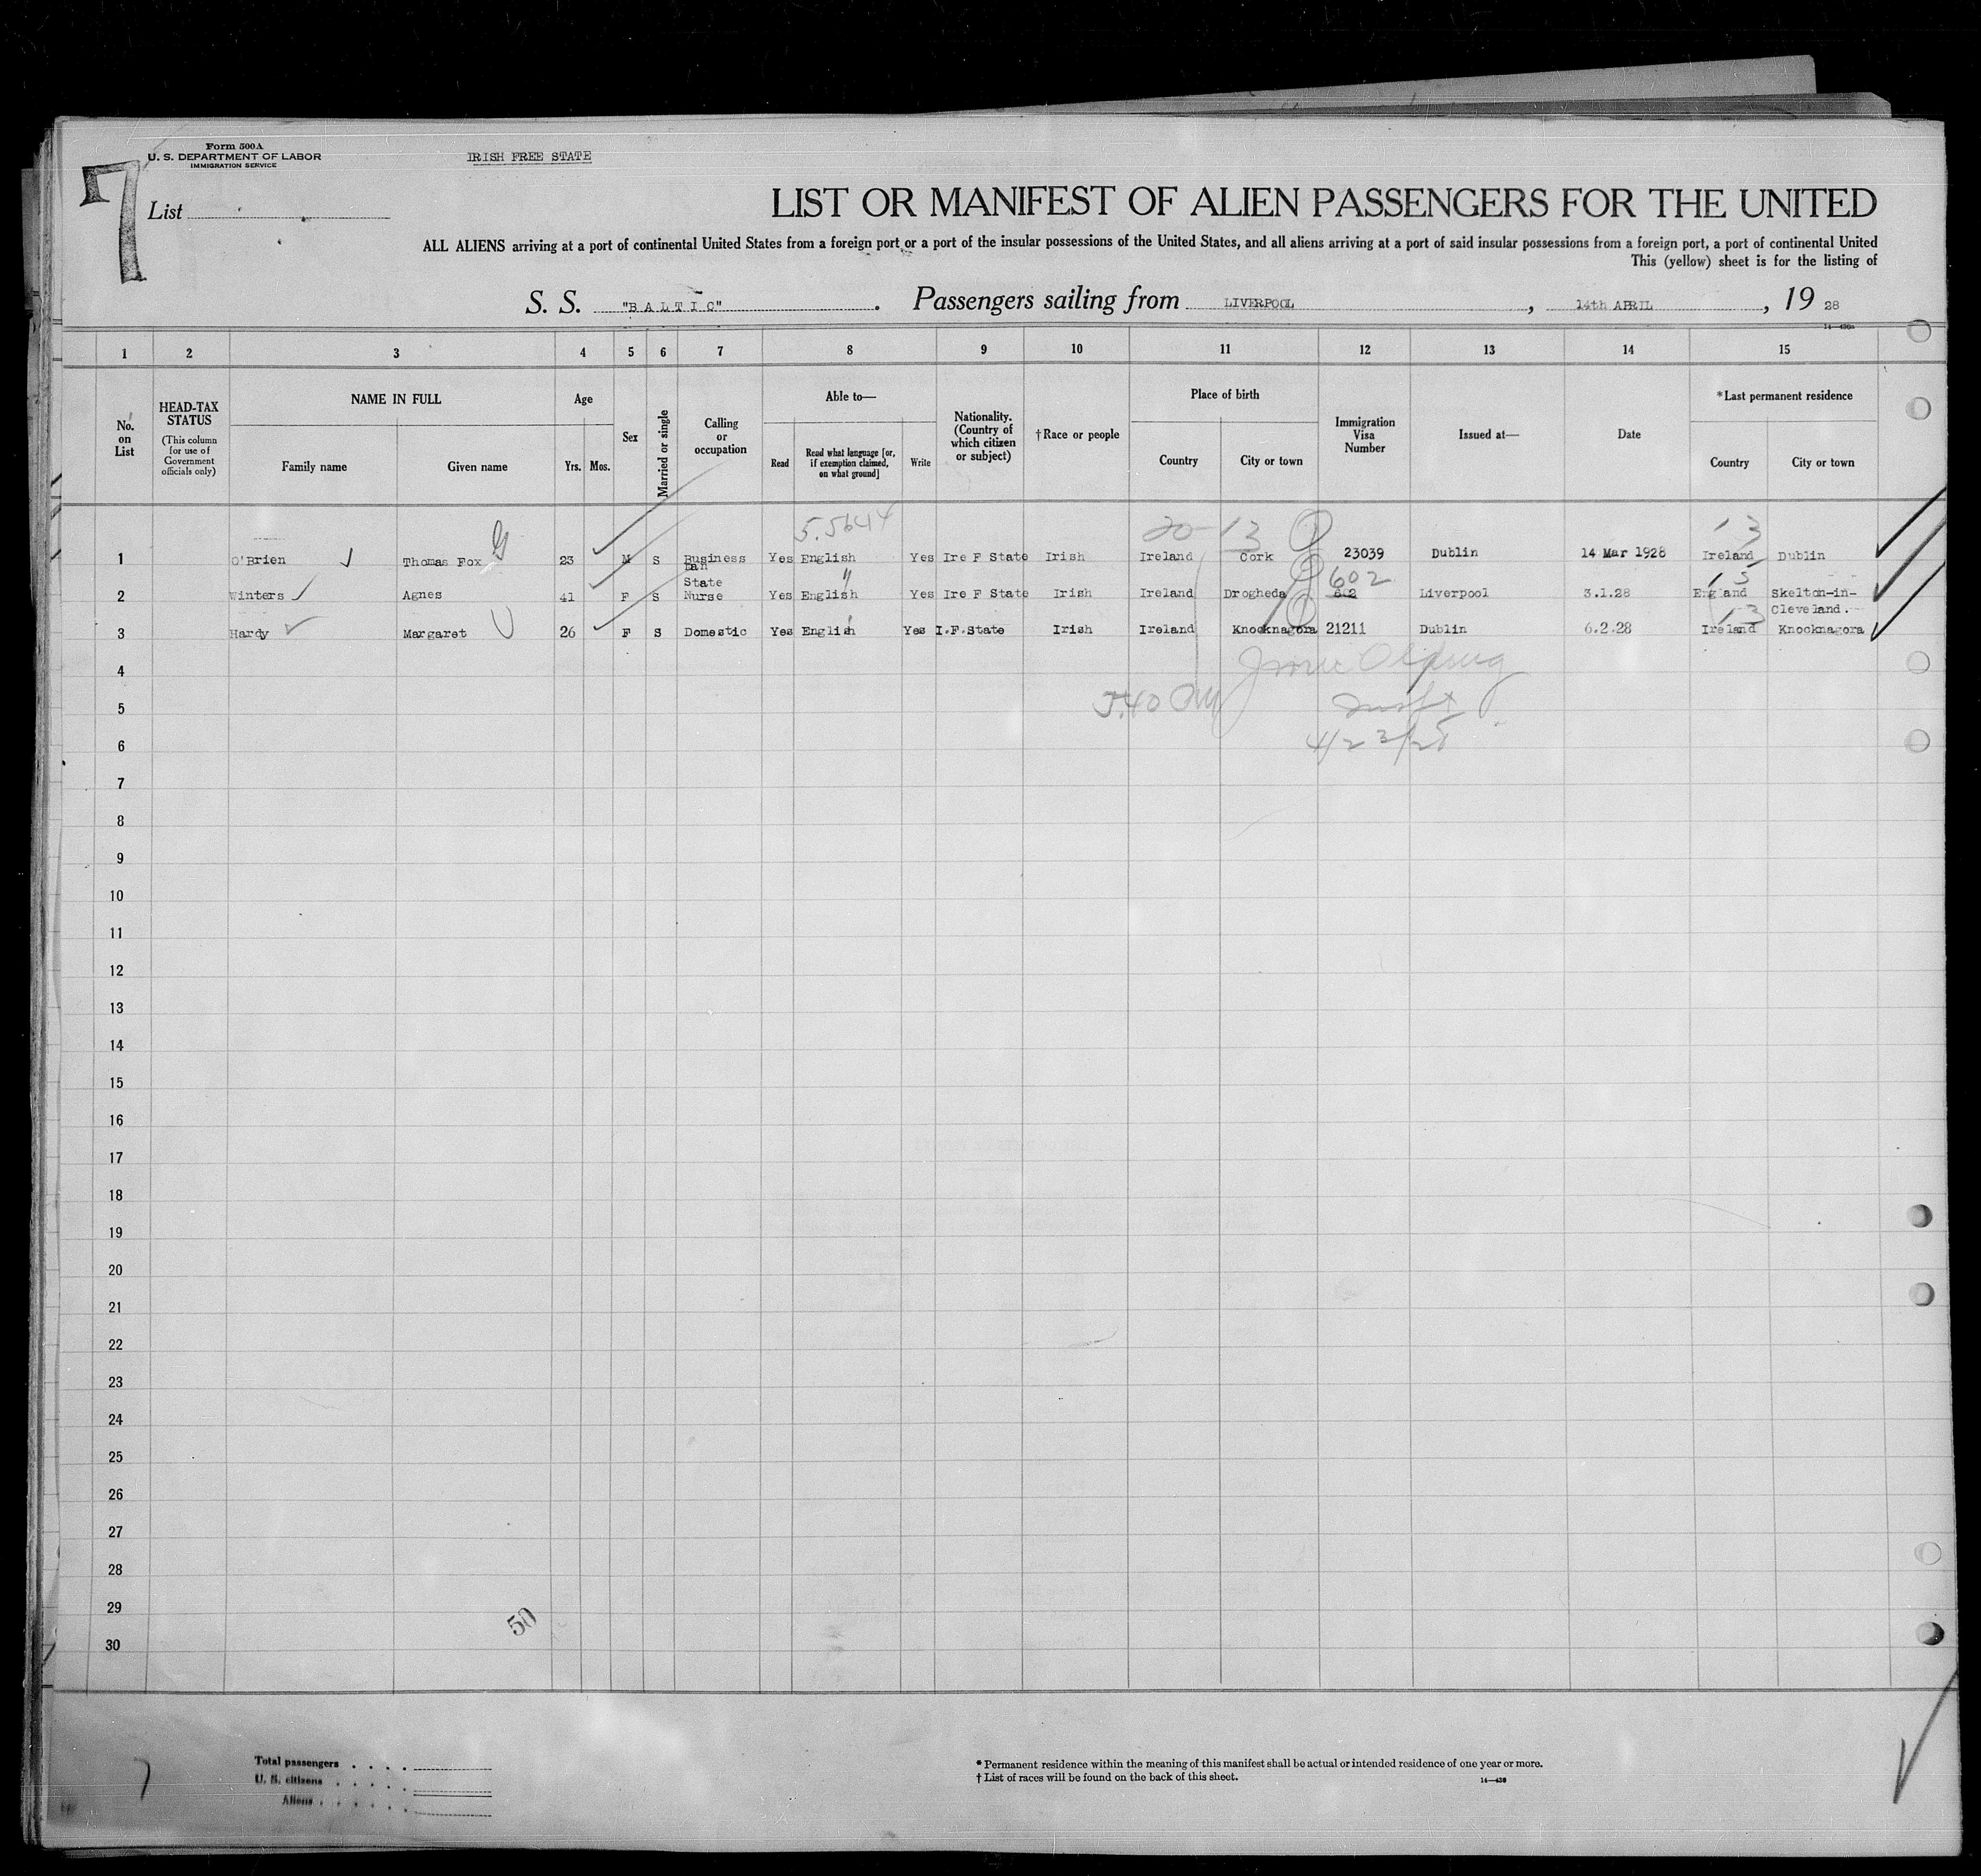 Form 500A
U. S. DEPARTMENT OF LABOR
IMMIGRATION SERVICE
IRISH FREE STATE
7
List
LIST OR MANIFEST OF ALIEN PASSENGERS FOR THE UNITED
ALL ALIENS arriving at a port of continental United States from a foreign port or a port of the insular possessions of the United States, and all aliens arriving at a port of said insular possessions from a foreign port, a port of continental United
This (yellow) sheet is for the listing of
S. S. "BALTIC". Passengers sailing from LIVERPOOL, 14th APRIL, 19 28
1 2 3 4 5 6 7 8 9 10 11 12 13 14 15
No. on List
HEAD-TAX STATUS (This column for use of Government officials only)
NAME IN FULL
Family name Given name
Age
Yrs. Mos.
Sex
Married or single
Calling or occupation
Able to—
Read Read what language [or, if exemption claimed, on what ground] Write
Nationality. (Country of which citizen or subject)
†Race or people
Place of birth
Country City or town
Immigration Visa Number
Issued at—
Date
*Last permanent residence
Country City or town
5.5644 20-13 1 13
1 O'Brien Thomas Fox 23 M S Business Man Yes English Yes Ire F State Irish Ireland Cork 23039 Dublin 14 Mar 1928 Ireland Dublin
602 15
2 Winters Agnes 41 F S State Nurse Yes English Yes Ire F State Irish Ireland Drogheda 602 Liverpool 3.1.28 England Skelton-in-Cleveland.
13
3 Hardy Margaret 26 F S Domestic Yes English Yes I.F.State Irish Ireland Knocknagora 21211 Dublin 6.2.28 Ireland Knocknagora
4
5 5.40 PM
6 4/23/28
7
8
9
10
11
12
13
14
15
16
17
18
19
20
21
22
23
24
25
26
27
28
29
50
30
Total passengers
U. S. citizens
Aliens
7
* Permanent residence within the meaning of this manifest shall be actual or intended residence of one year or more.
† List of races will be found on the back of this sheet.
14—430